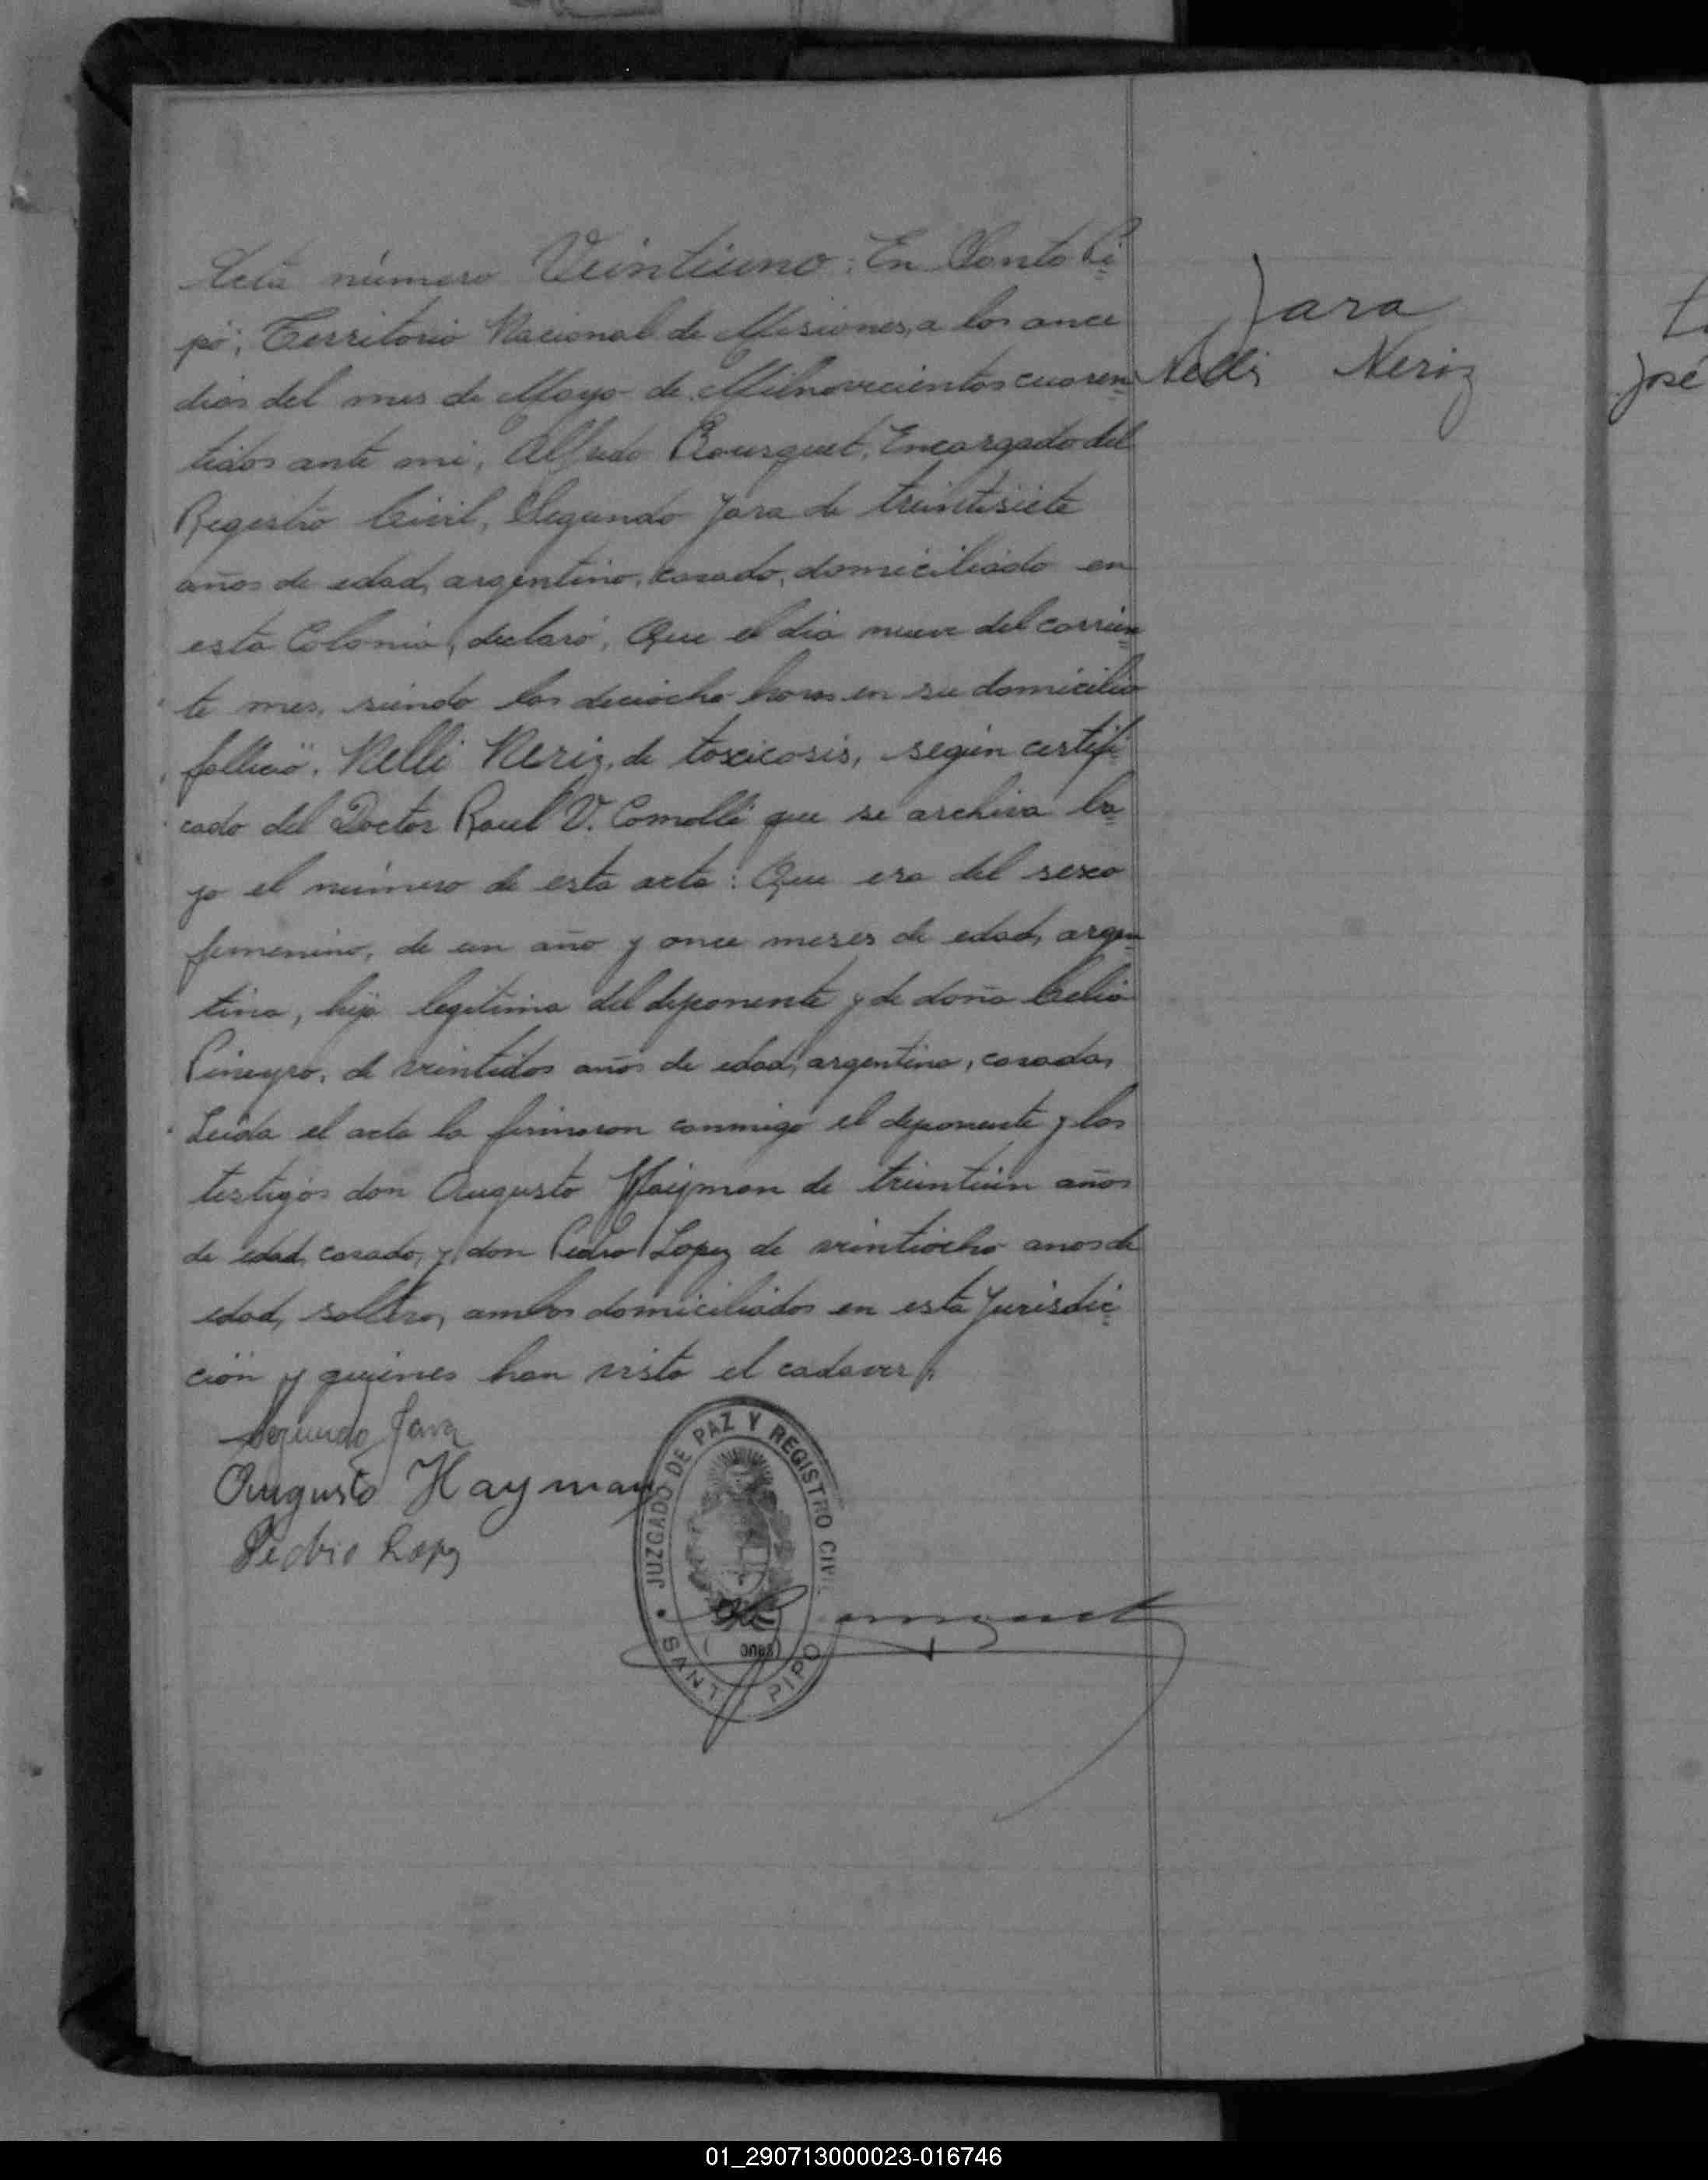 Acta número Veintiuno: En Santo Pi=
pó; Territorio Nacional de Misiones, a los once
dias del mes de Mayo de Milnovecientos cuaren=
tidos ante mi, Alfredo Bousquet, Encargado del
Registro Civil, Segundo Jara de treintisiete
años de edad, argentino, casado, domiciliado en
esta Colonia, declaró, Que el dia nueve del corrien=
te mes, siendo las dieciocho horas en su domicilio
falleció, Nelli Neriz, de toxicosis, según certifi=
cado del Doctor Raul V. Comolli que se archiva ba=
jo el número de esta acta: Que era del sexo
femenino, de un año y once meses de edad, argen=
tina, hija legitima del deponente y de doña Celia
Pineyro, de veintidos años de edad, argentina, casada,
Leida el acta la firmaron conmigo el deponente y los
testigos don Augusto Hayman de treintiun años
de edad, casado, y don Pedro Lopez de veintiocho anos de
edad, soltero, ambos domiciliados en esta Jurisdic=
ción y quienes han visto el cadaver
Segundo Jara
Augusto Hayman
Pedro Lopez
JUZGADO DE PAZ Y REGISTRO CIVIL
SANT PIPO
Jara
Nelli Neriz
José
01_290713000023-016746